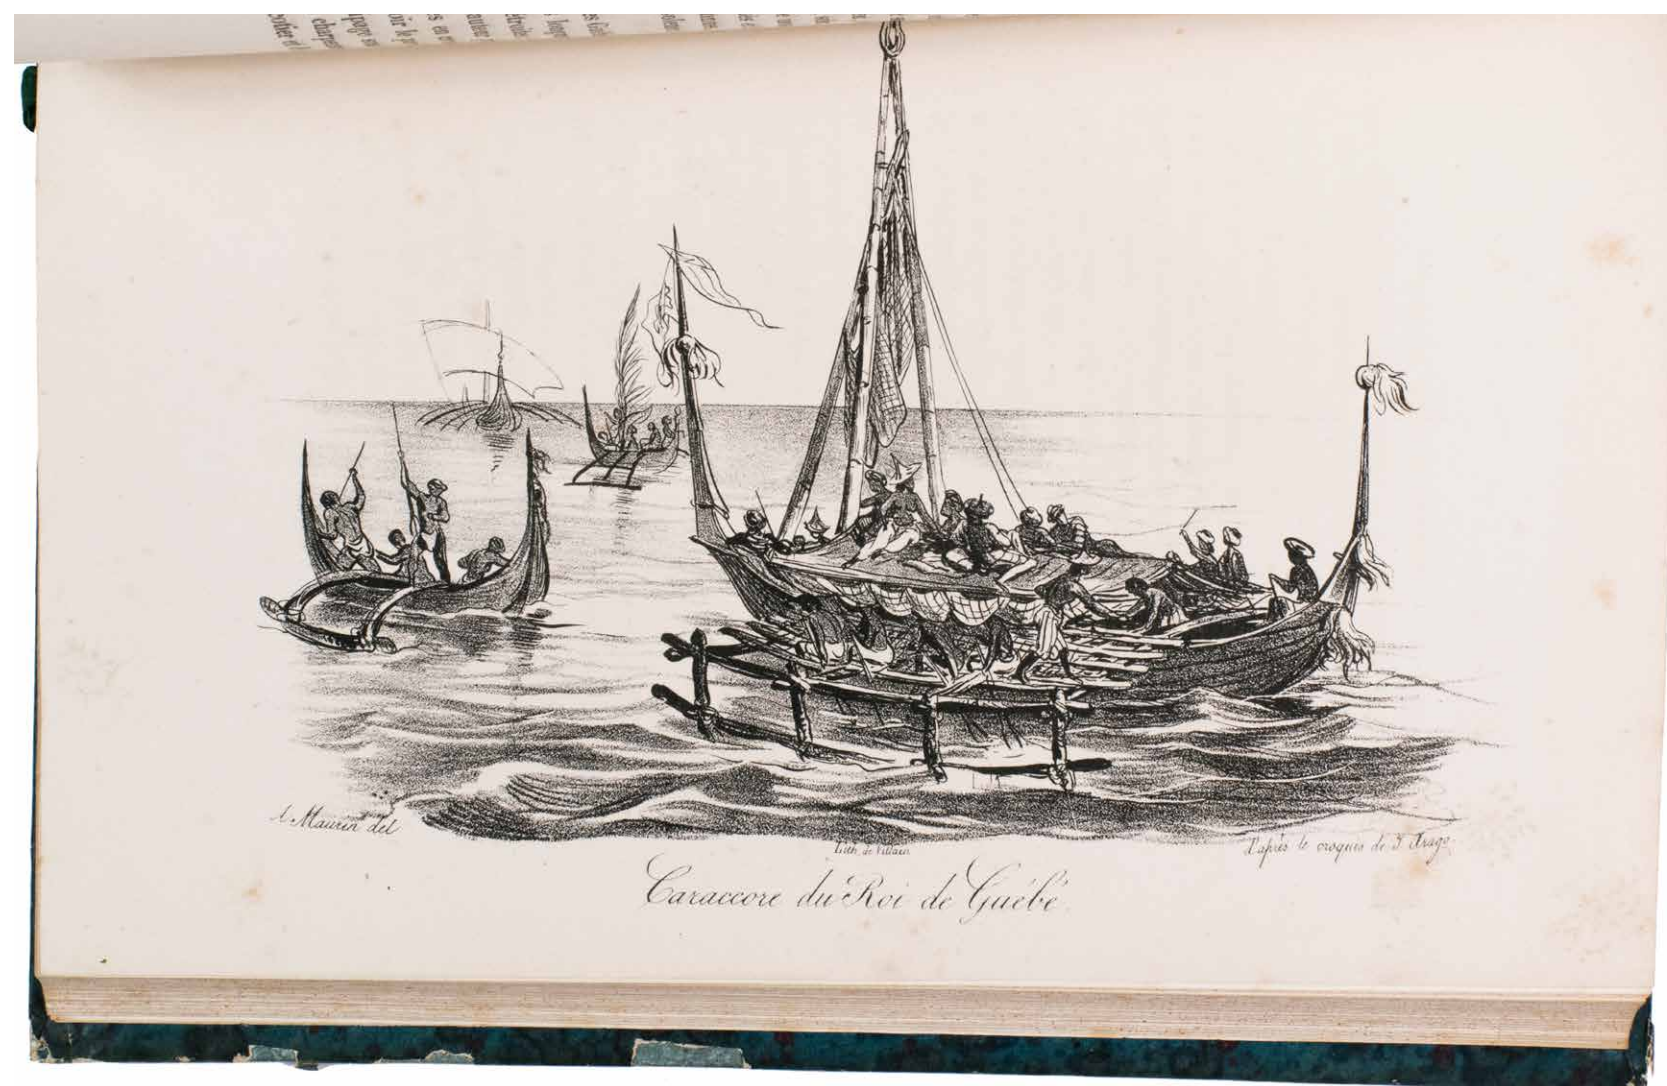 A. Maurin del
Lith. de Villain
d'après le croquis de J. Arago.
Caraccore du Roi de Guébé